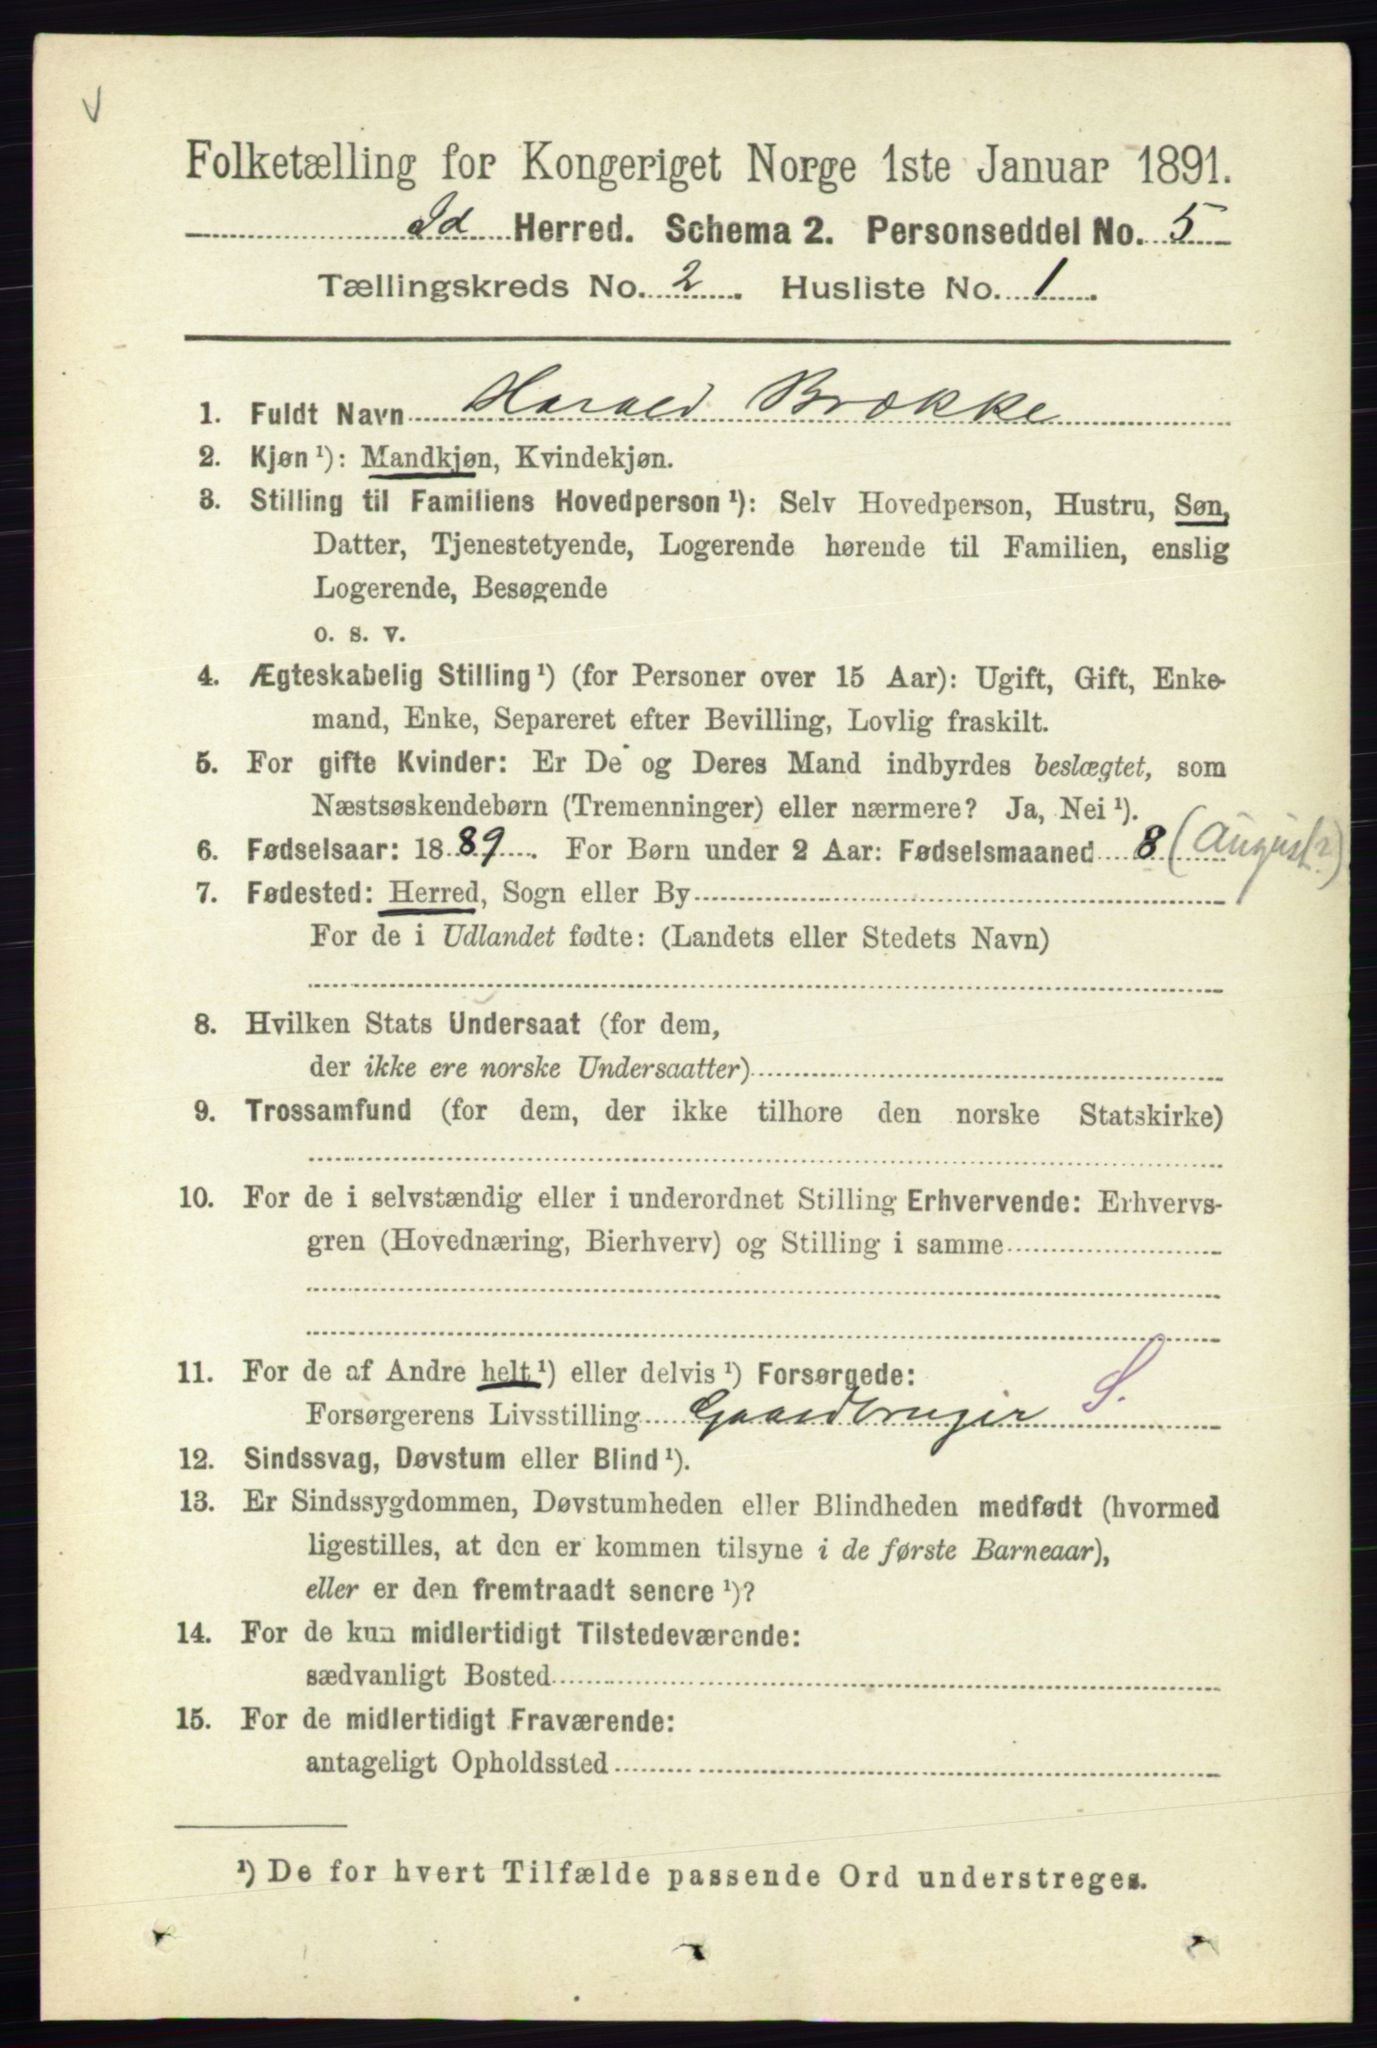 V
Folketælling for Kongeriget Norge 1ste Januar 1891.
Id Herred. Schema 2. Personseddel No. 5
Tællingskreds No. 2. Husliste No. 1.
1. Fuldt Navn Harald Brække
2. Kjøn ¹): Mandkjøn, Kvindekjøn.
3. Stilling til Familiens Hovedperson ¹): Selv Hovedperson, Hustru, Søn,
Datter, Tjenestetyende, Logerende hørende til Familien, enslig
Logerende, Besøgende
o. s. v.
4. Ægteskabelig Stilling ¹) (for Personer over 15 Aar): Ugift, Gift, Enke-
mand, Enke, Separeret efter Bevilling, Lovlig fraskilt.
5. For gifte Kvinder: Er De og Deres Mand indbyrdes beslægtet, som
Næstsøskendebørn (Tremenninger) eller nærmere? Ja, Nei ¹).
6. Fødselsaar: 1889. For Børn under 2 Aar: Fødselsmaaned 8 (August?)
7. Fødested: Herred, Sogn eller By
For de i Udlandet fødte: (Landets eller Stedets Navn)
8. Hvilken Stats Undersaat (for dem,
der ikke ere norske Undersaatter)
9. Trossamfund (for dem, der ikke tilhore den norske Statskirke)
10. For de i selvstændig eller i underordnet Stilling Erhvervende: Erhvervs-
gren (Hovednæring, Bierhverv) og Stilling i samme
11. For de af Andre helt ¹) eller delvis ¹) Forsørgede:
Forsørgerens Livsstilling Gaardbruger S.
12. Sindssvag, Døvstum eller Blind ¹).
13. Er Sindssygdommen, Døvstumheden eller Blindheden medfødt (hvormed
ligestilles, at den er kommen tilsyne i de første Barneaar),
eller er den fremtraadt senere ¹)?
14. For de kun midlertidigt Tilstedeværende:
sædvanligt Bosted
15. For de midlertidigt Fraværende:
antageligt Opholdssted
¹) De for hvert Tilfælde passende Ord understreges.